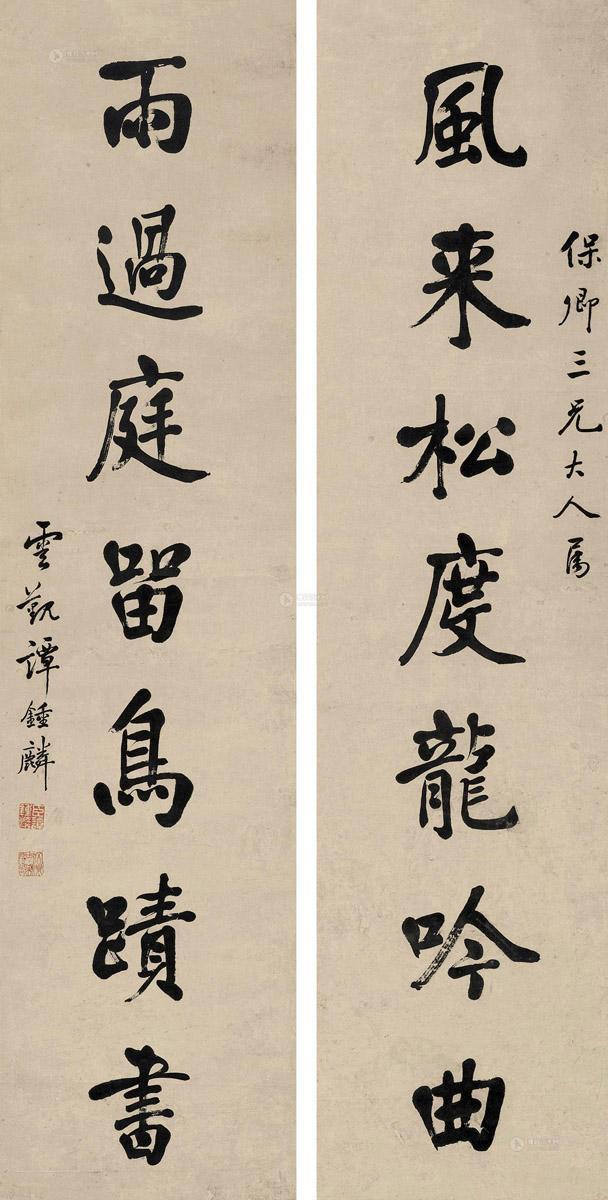 保卿三兄大人属
風来松度龍吟曲
雨過庭留鳥蹟書
雲觐譚鍾麟